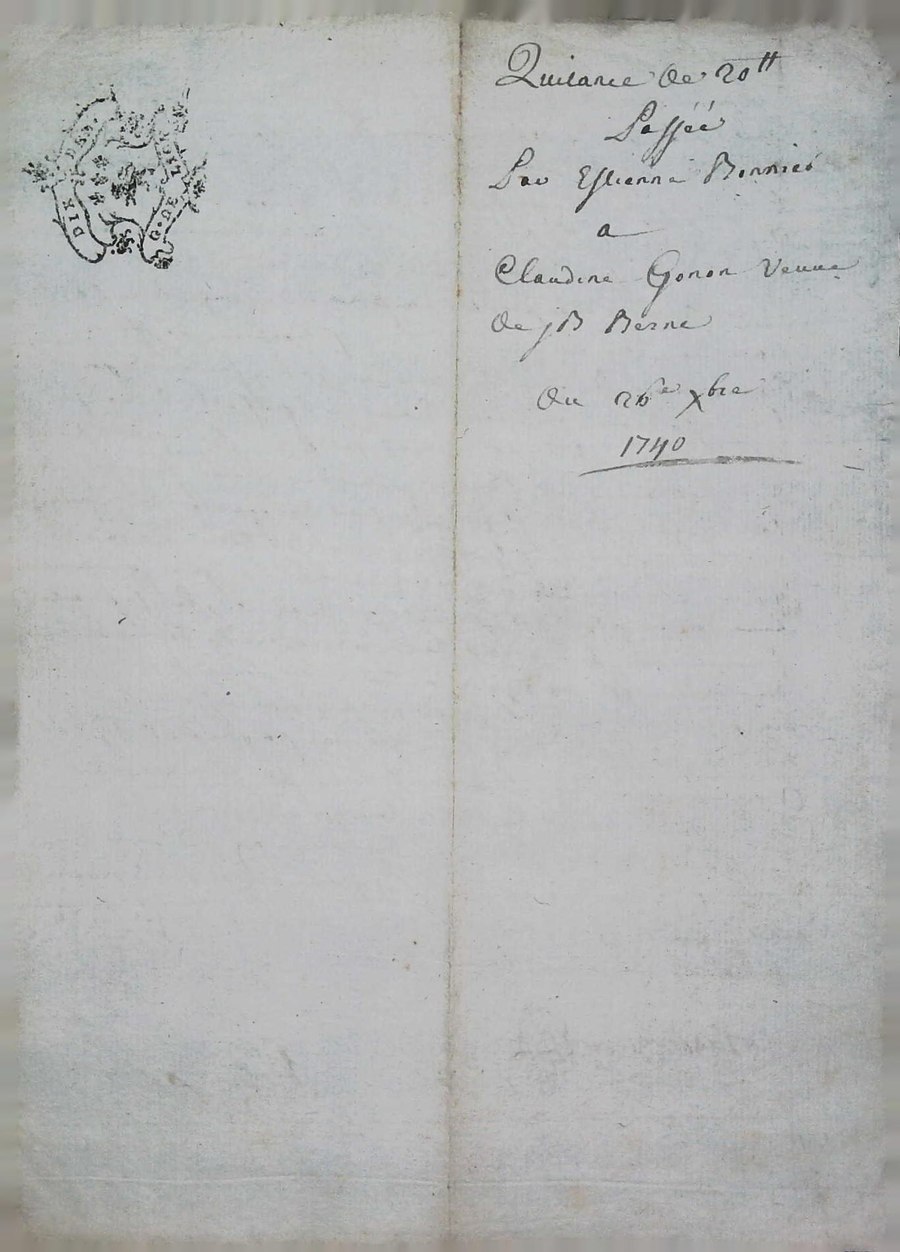 DIX DEN.
G. DE LION
Quitance de 20tt
Passéé
Par Estienne Bonnier
a
Claudine Gonon Veuue
de jB Berne
du 26e Xbre
1740